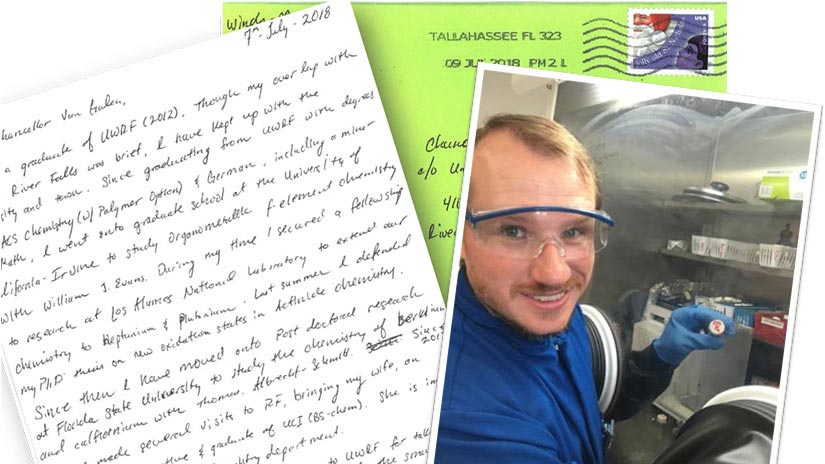 7th - July - 2018
Chancellor Van Galen,
a graduate of UWRF (2012). Though my overlap with
River Falls was brief, I have kept up with the
sity and town. Since graduating from UWRF with degrees
ACS Chemistry (w/ Polymer Option) & German, including a minor
Math, I went onto graduate school at the University of
lifornia-Irvine to study Organometallic f element chemistry
with William J. Evans. During my time I secured a fellowship
to research at Los Alamos National Laboratory to extend our
chemistry to Neptunium & Plutonium. Last summer I defended
my Ph.D. thesis on new oxidation states in Actinide chemistry.
Since then I have moved onto Post doctoral research
at Florida State University to study the chemistry of Berkelium
and californium with Thomas Albrecht-Schmitt. Since
made several visits to RF, bringing my wife, an
tive & graduate of UCI (BS-chem). She is
department.
to UWRF for
TALLAHASSEE FL 323
09 JUL 2018 PM 2 L
USA
c/o Un
411
River